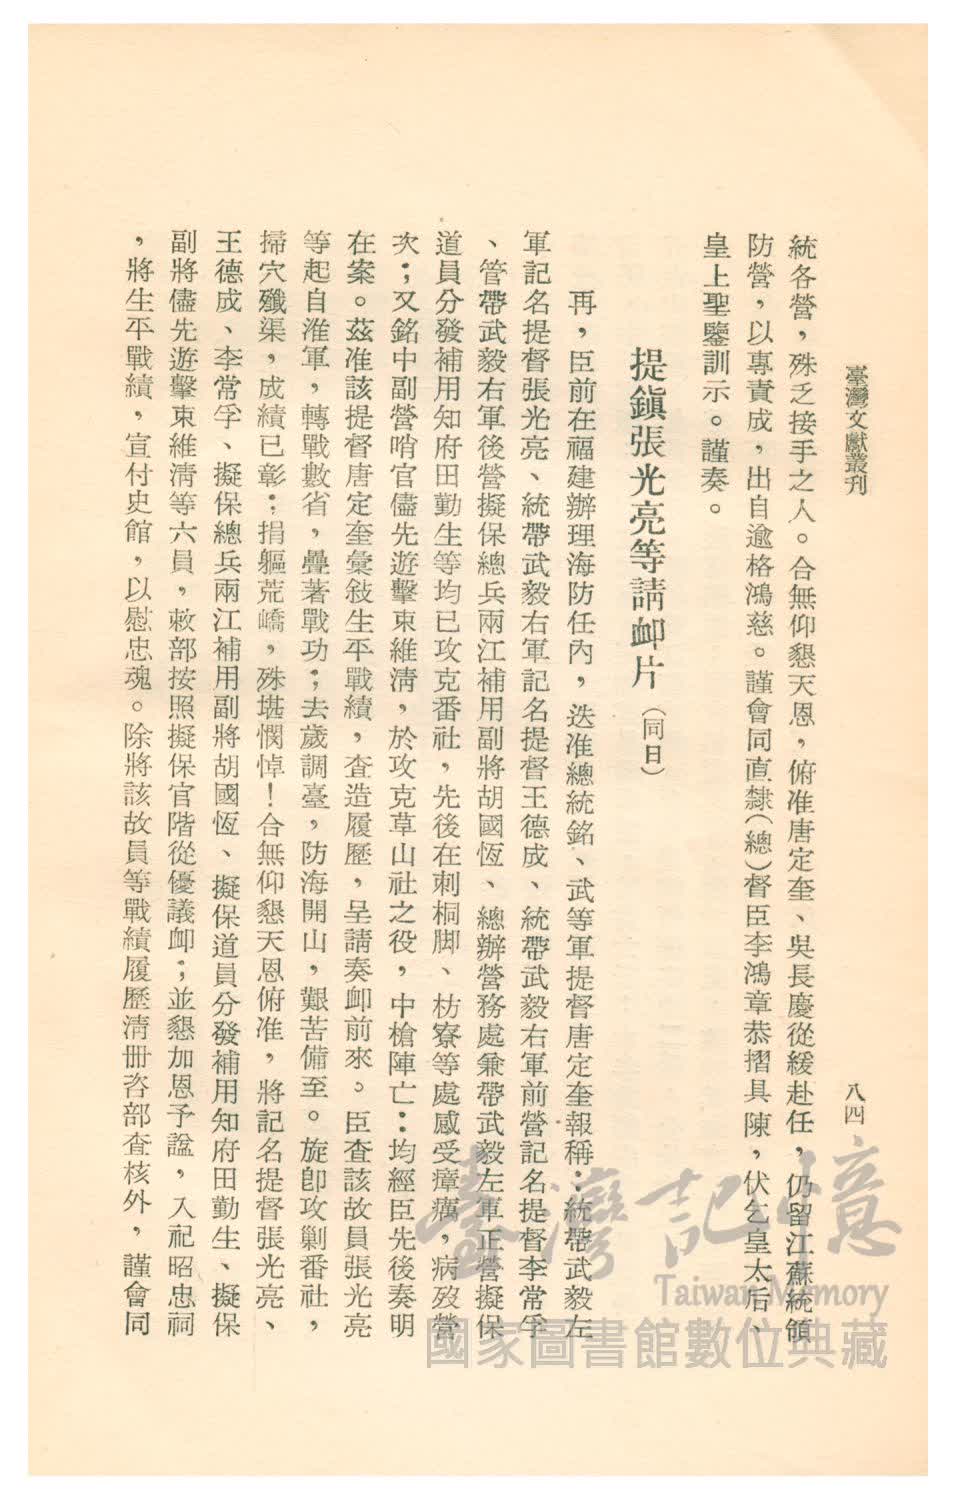 臺灣文獻叢刊
八四
統各營，殊乏接手之人。合無仰懇天恩，俯准唐定奎、吳長慶從緩赴任，仍留江蘇統領
防營，以專責成，出自逾格鴻慈。謹會同直隸（總）督臣李鴻章恭摺具陳，伏乞皇太后、
皇上聖鑒訓示。謹奏。
提鎮張光亮等請卹片（同日）
再，臣前在福建辦理海防任內，迭准總統銘、武等軍提督唐定奎報稱：統帶武毅左
軍記名提督張光亮、統帶武毅右軍記名提督王德成、統帶武毅右軍前營記名提督李常孚
、管帶武毅右軍後營擬保總兵兩江補用副將胡國恆、總辦營務處兼帶武毅左軍正營擬保
道員分發補用知府田勤生等均已攻克番社，先後在刺桐脚、枋寮等處感受瘴癘，病歿營
次；又銘中副營哨官儘先遊擊束維清，於攻克草山社之役，中槍陣亡：均經臣先後奏明
在案。茲准該提督唐定奎彙敍生平戰績，查造履歷，呈請奏卹前來。臣查該故員張光亮
等起自淮軍，轉戰數省，疊著戰功；去歲調臺，防海開山，艱苦備至。旋卽攻剿番社，
掃穴殲渠，成績已彰；捐軀荒嶠，殊堪憫悼！合無仰懇天恩俯准，將記名提督張光亮、
王德成、李常孚、擬保總兵兩江補用副將胡國恆、擬保道員分發補用知府田勤生、擬保
副將儘先遊擊束維清等六員，敕部按照擬保官階從優議卹；並懇加恩予諡，入祀昭忠祠
，將生平戰績，宣付史館，以慰忠魂。除將該故員等戰績履歷清册咨部查核外，謹會同
臺灣記憶
Taiwan Memory
國家圖書館數位典藏